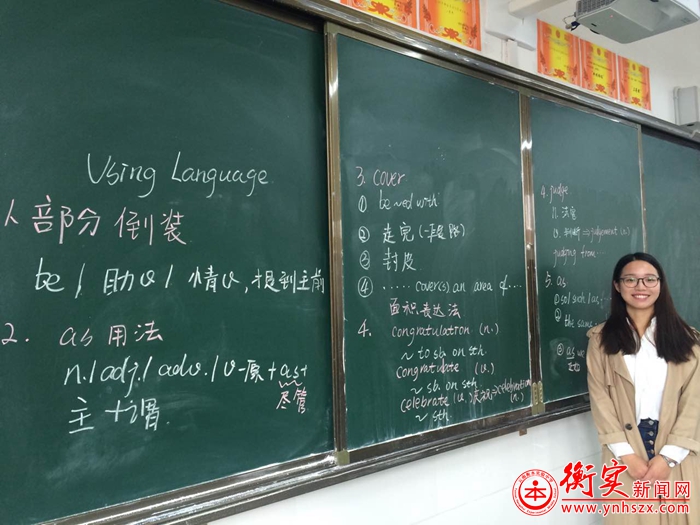 Using Language
1. 部分倒装
be / 助v / 情v, 提到主前
2. as 用法
n. / adj. / adv. / v-原 + as +
尽管
主 + 谓
3. cover
① be ~ed with
② 走完(一段路)
③ 封皮
④ ······ cover(s) an area of ····
面积表达法
4. congratulation (n.)
~ to sb. on sth.
congratulate (v.)
~ sb. on sth.
celebrate (v.) 庆祝 ⇒ celebration (n.)
~ sth.
4. judge
n. 法官
v. 判断 ⇒ judgement (n.)
judging from ···
5. as
① so / such / as ···
② the same
③ as
衡实新闻网
www.ynhszx.com